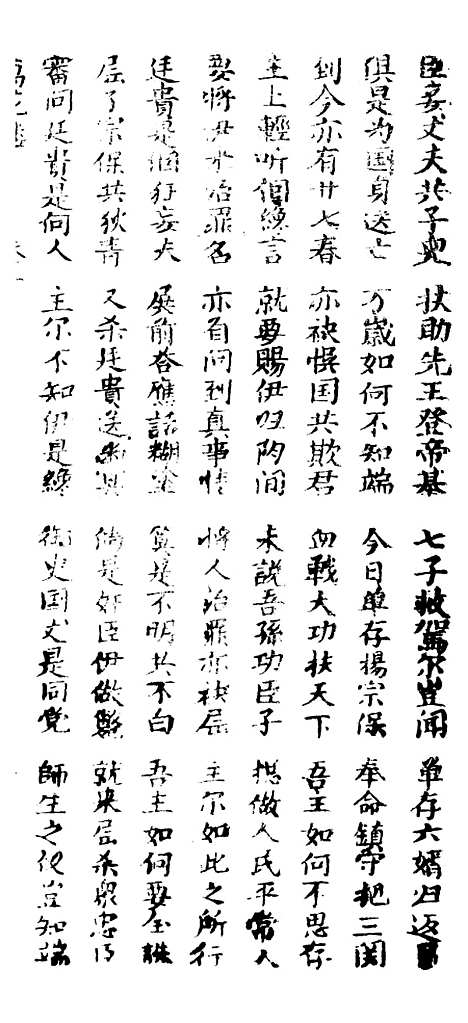 臣妾丈夫共子兒 扶助先王登帝基 七子救駕尔豈聞 单存六婿归返
俱是为国身送亡 万歲如何不知端 今日单存楊宗保 奉命鎮守把三関
到今亦有廿七春 亦袂悞国共欺君 血戰大功扶天下 吾王如何不思存
主上輕听個緣言 就要賜伊归阴间 未說吾孫功臣子 想做人民平常人
娶將伊來治罪名 亦着问到真事情 將人治罪亦袂屈 主尔如此之所行
廷貴是個狂妄夫 殿前答應話糊塗 算是不明共不白 吾主如何要全誅
屈了宗保共狄青 又杀廷貴送 倘是奸臣伊做弊 就來屈杀眾忠
審问廷貴是何人 主尔不知伊是 御史国丈是同党 師生之 豈知端